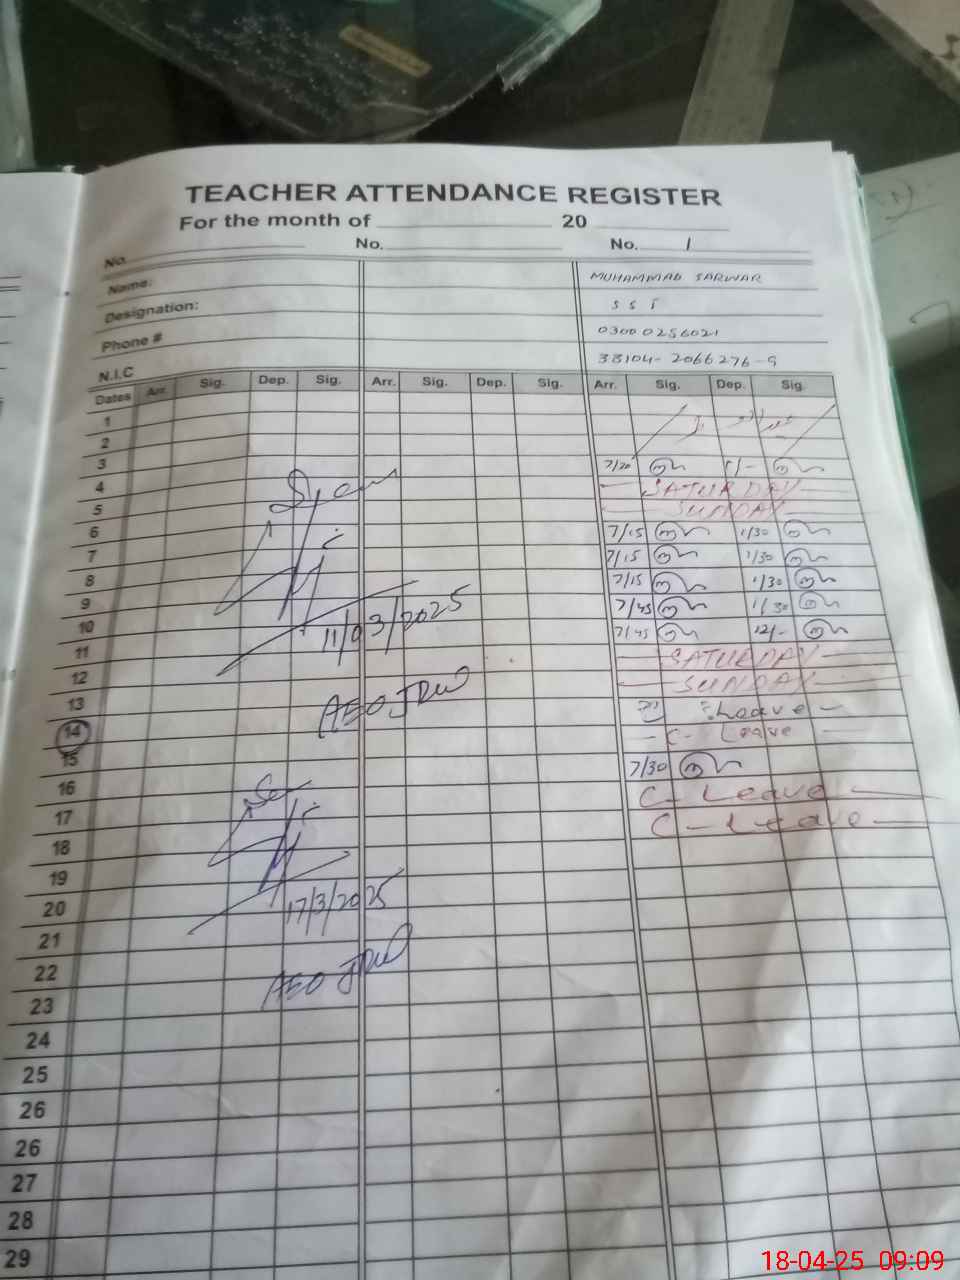 TEACHER ATTENDANCE REGISTER
For the month of 20
No. No. No. 1
Name: MUHAMMAD SARWAR
Designation: S S T
Phone # 03000256021
N.I.C 38104-2066276-9
Dates Arr. Sig. Dep. Sig. Arr. Sig. Dep. Sig. Arr. Sig. Dep. Sig.
1
2
3 7/20
4 SATURDAY
5 SUNDAY
6 7/15 1/30
7 7/15 1/30
8 7/15 1/30
9 7/45 1/30
10 7/45 12/-
11 SATURDAY
12 SUNDAY
13 Leave
14 C- Leave
15 7/30
16 C- Leave
17 C- Leave
18
19
20
21
22
23
24
25
26
26
27
28
29
11/03/2025
AEO
17/3/2025
AEO
18-04-25 09:09